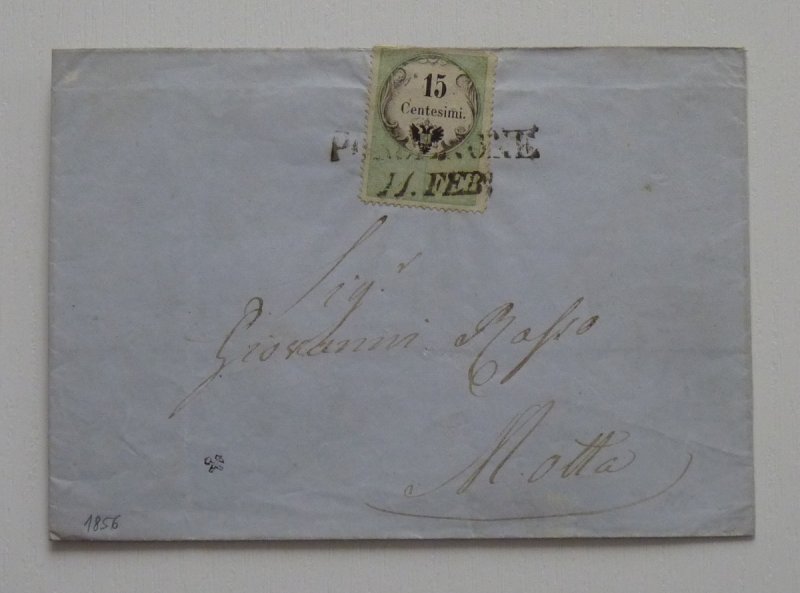 15
Centesimi.
PORDENONE
11. FEB.
Sig.r
Giovanni Rosso
Motta
1856